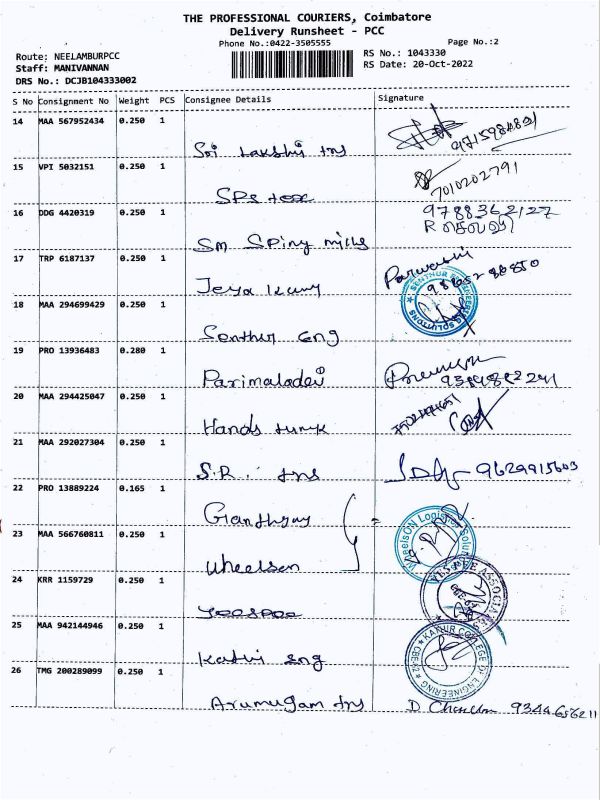 THE PROFESSIONAL COURIERS, Coimbatore
Delivery Runsheet - PCC
Phone No.:0422-3505555
Page No.:2
Route: NEELAMBURPCC
Staff: MANIVANNAN
DRS No.: DCJB104333002
RS No.: 1043330
RS Date: 20-Oct-2022
S No Consignment No Weight PCS Consignee Details Signature
14 MAA 567952434 0.250 1
Sri Lakshi tns
15 VPI 5032151 0.250 1
7010202791
SPS tex
16 DDG 4420319 0.250 1
9788362127
SM Spiny mills
17 TRP 6187137 0.250 1
Parvathi
Jeya
18 MAA 294699429 0.250 1
SOLUTIONS
Senthur eng
19 PRO 13936483 0.280 1
Parimaladevi
20 MAA 294425047 0.250 1
Hands
21 MAA 292027304 0.250 1
S.R. tns 9629915603
22 PRO 13889224 0.165 1
23 MAA 566760811 0.250 1
WheelsON Logistic
Wheelsen
24 KRR 1159729 0.250 1
25 MAA 942144946 0.250 1
Kathi eng
COLLEGE OF ENGINEERING
26 TMG 200289099 0.250 1
Arumugam tns